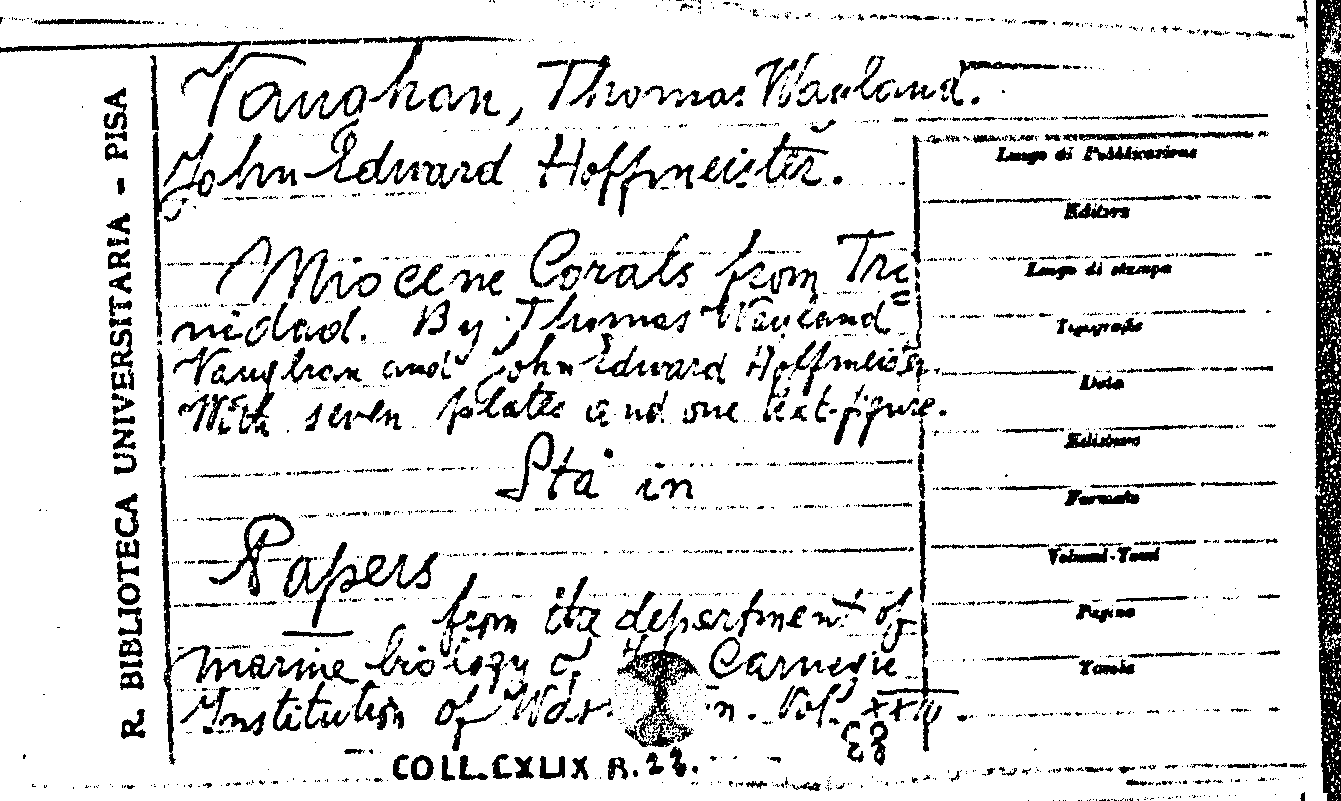 R. BIBLIOTECA UNIVERSITARIA - PISA
Vaughan, Thomas Wayland.
John Edward Hoffmeister.
Miocene Corals from Tri=
nidad. By Thomas Wayland
Vaughan and John Edward Hoffmeister.
With seven plates and one text-figure.
Sta in
Papers
from the department of
marine biology of Carnegie
Institution of Vol.
COLL.CXLIX B.23.
Luogo di Pubblicazione
Editore
Luogo di stampa
Tipografia
Data
Edizione
Formato
Volumi-Tomi
Pagine
Tavole